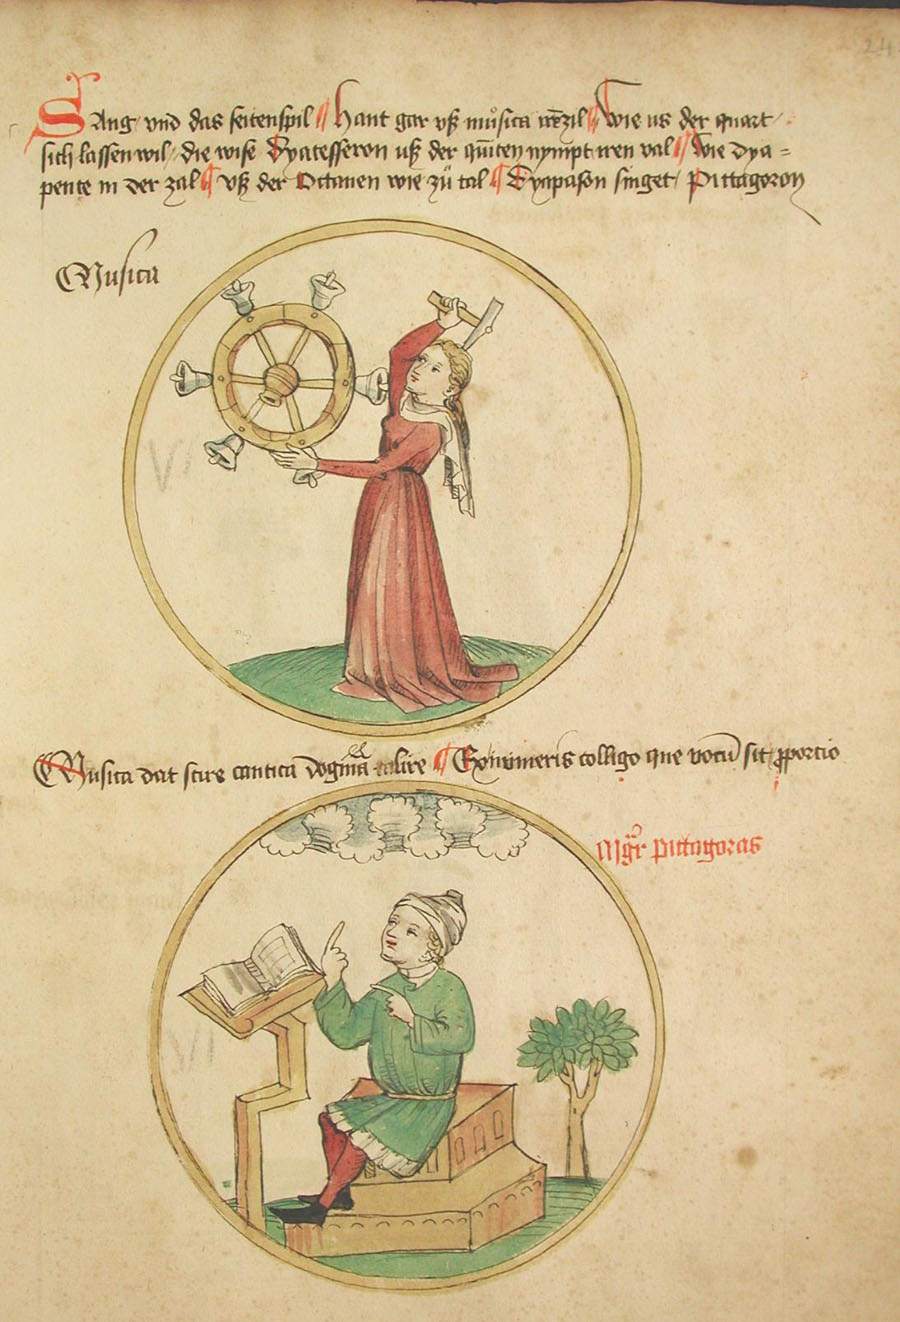 24
Sang vnd das seitenspil ¶ Hant gar vß můsica ir zil ¶ Wie us der quart
sich lassen wil / die wise Dyatesseron uß der quinten nympt iren val ¶ Wie dya=
pente in der zal ¶ Vß der Octauen wie zů tal ¶ Dyapason singet / Pittagoron
Musica
Musica dat scire cantica dogma ¶ Ex numeris colligo que vocū sit pportio
Mgr pittagoras
VI
VI